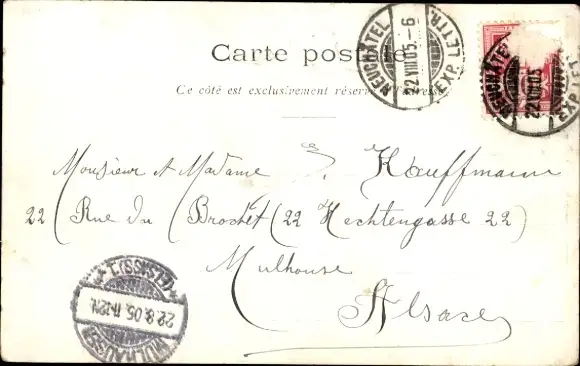 Carte postale
Ce côté est exclusivement réservé à l'adresse
NEUCHÂTEL 22.VIII.05.-6 EXP. LETTR.
NEUCHÂTEL 22.VIII.05
Monsieur et Madame E. Kauffmann
22 Rue du Brochet (22 Hechtengasse 22)
Mulhouse
Alsace
MÜLHAUSEN (ELSASS) 1. 22.8.05. 11-12V.